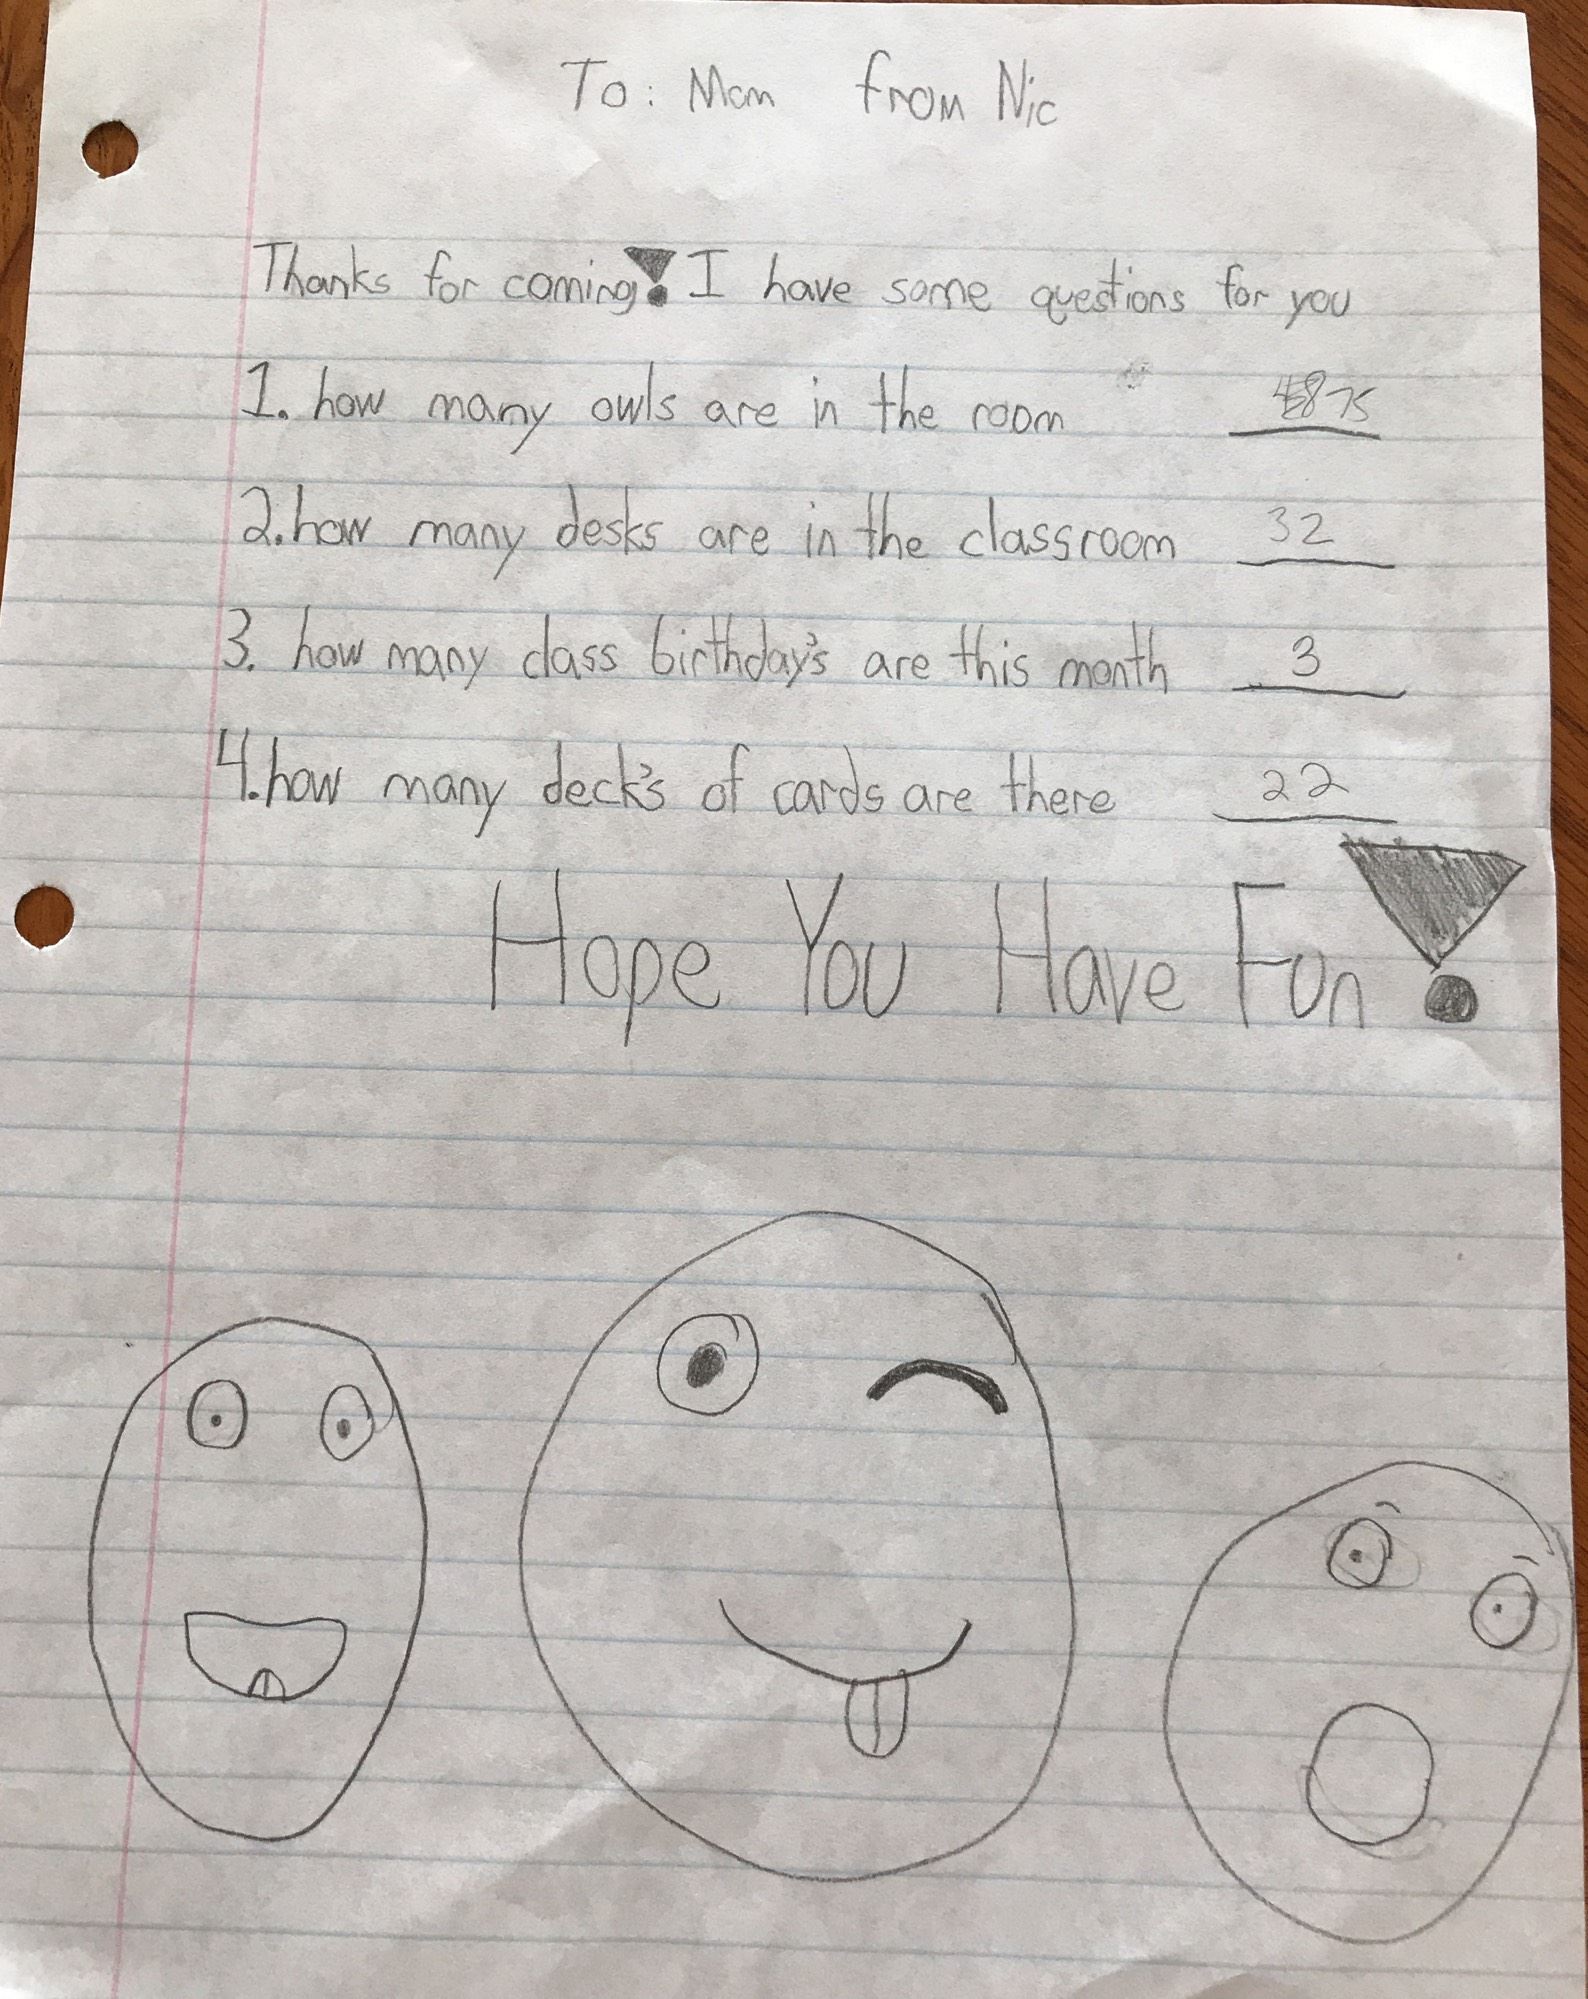 To: Mom from Nic
Thanks for coming! I have some questions for you
1. how many owls are in the room 75
2. how many desks are in the classroom 32
3. how many class birthday's are this month 3
4. how many deck's of cards are there 22
Hope You Have Fun!